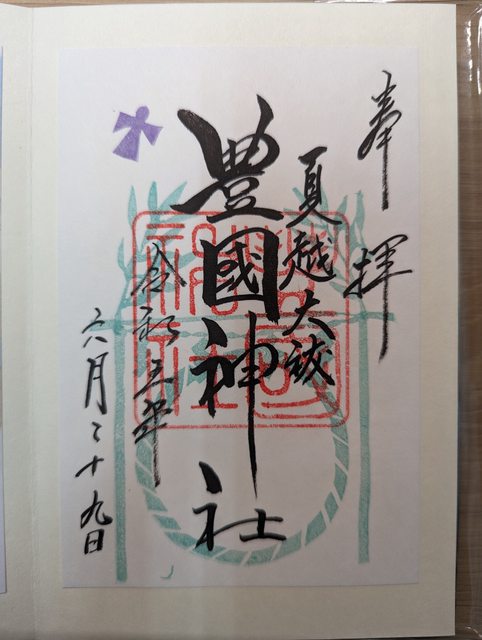 奉拝
夏越大祓
豊國神社
令和五年
六月二十九日